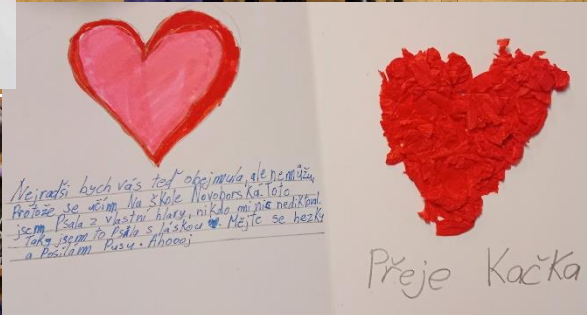 Nejradši bych vás teď obejmula, ale nemůžu,
Protože se učím Na škole Novoborská toto
jsem Psala z vlastní hlavy, nikdo mi nic nediktoval
Taky jsem to Psala s láskou. Mějte se hezky
a Posílám Pusu. Ahoooj
Přeje Kačka